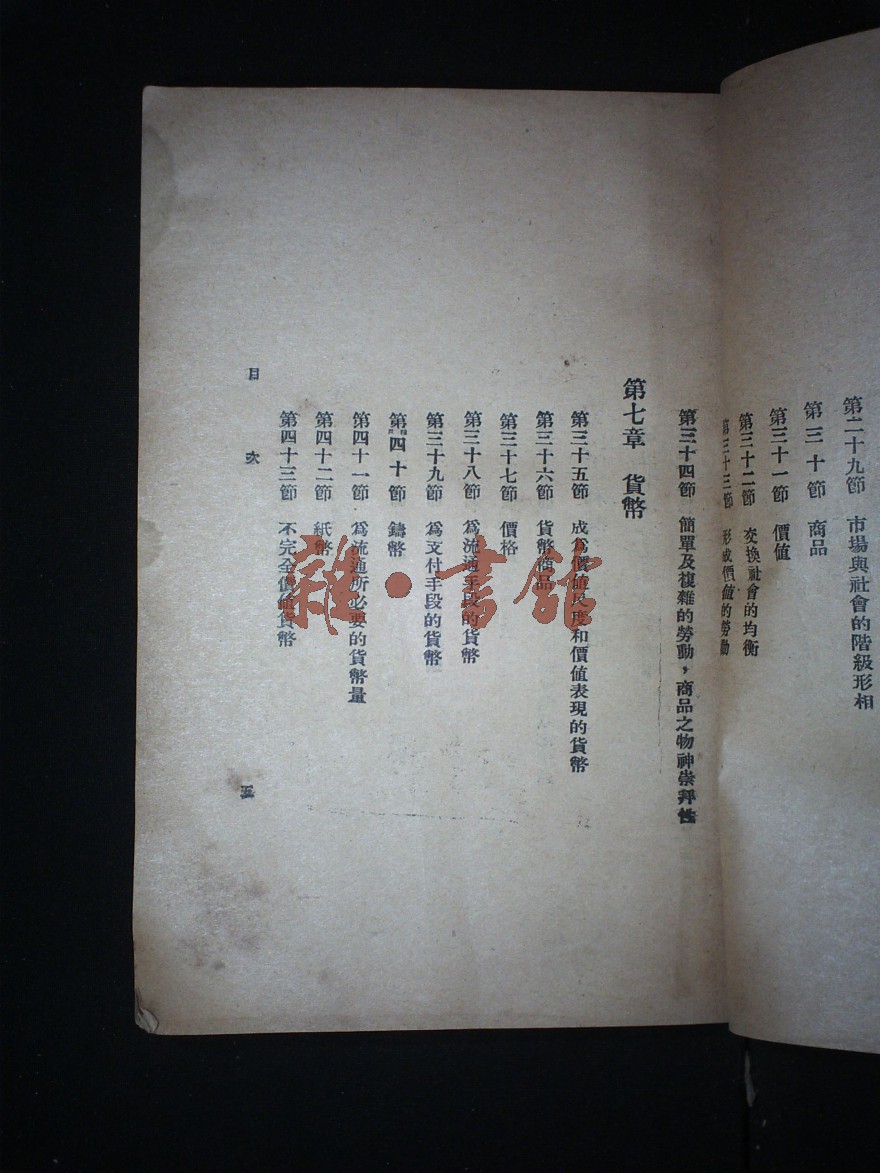 第二十九節　市場與社會的階級形相
第三十節　商品
第三十一節　價值
第三十二節　交換社會的均衡
第三十三節　形成價值的勞動
第三十四節　簡單及複雜的勞動，商品之物神崇拜性
第七章　貨幣
第三十五節　成爲價值尺度和價值表現的貨幣
第三十六節　貨幣商品
第三十七節　價格
第三十八節　爲流通手段的貨幣
第三十九節　爲支付手段的貨幣
第四十節　鑄幣
第四十一節　爲流通所必要的貨幣量
第四十二節　紙幣
第四十三節　不完全價值貨幣
目次
五
雜·書館